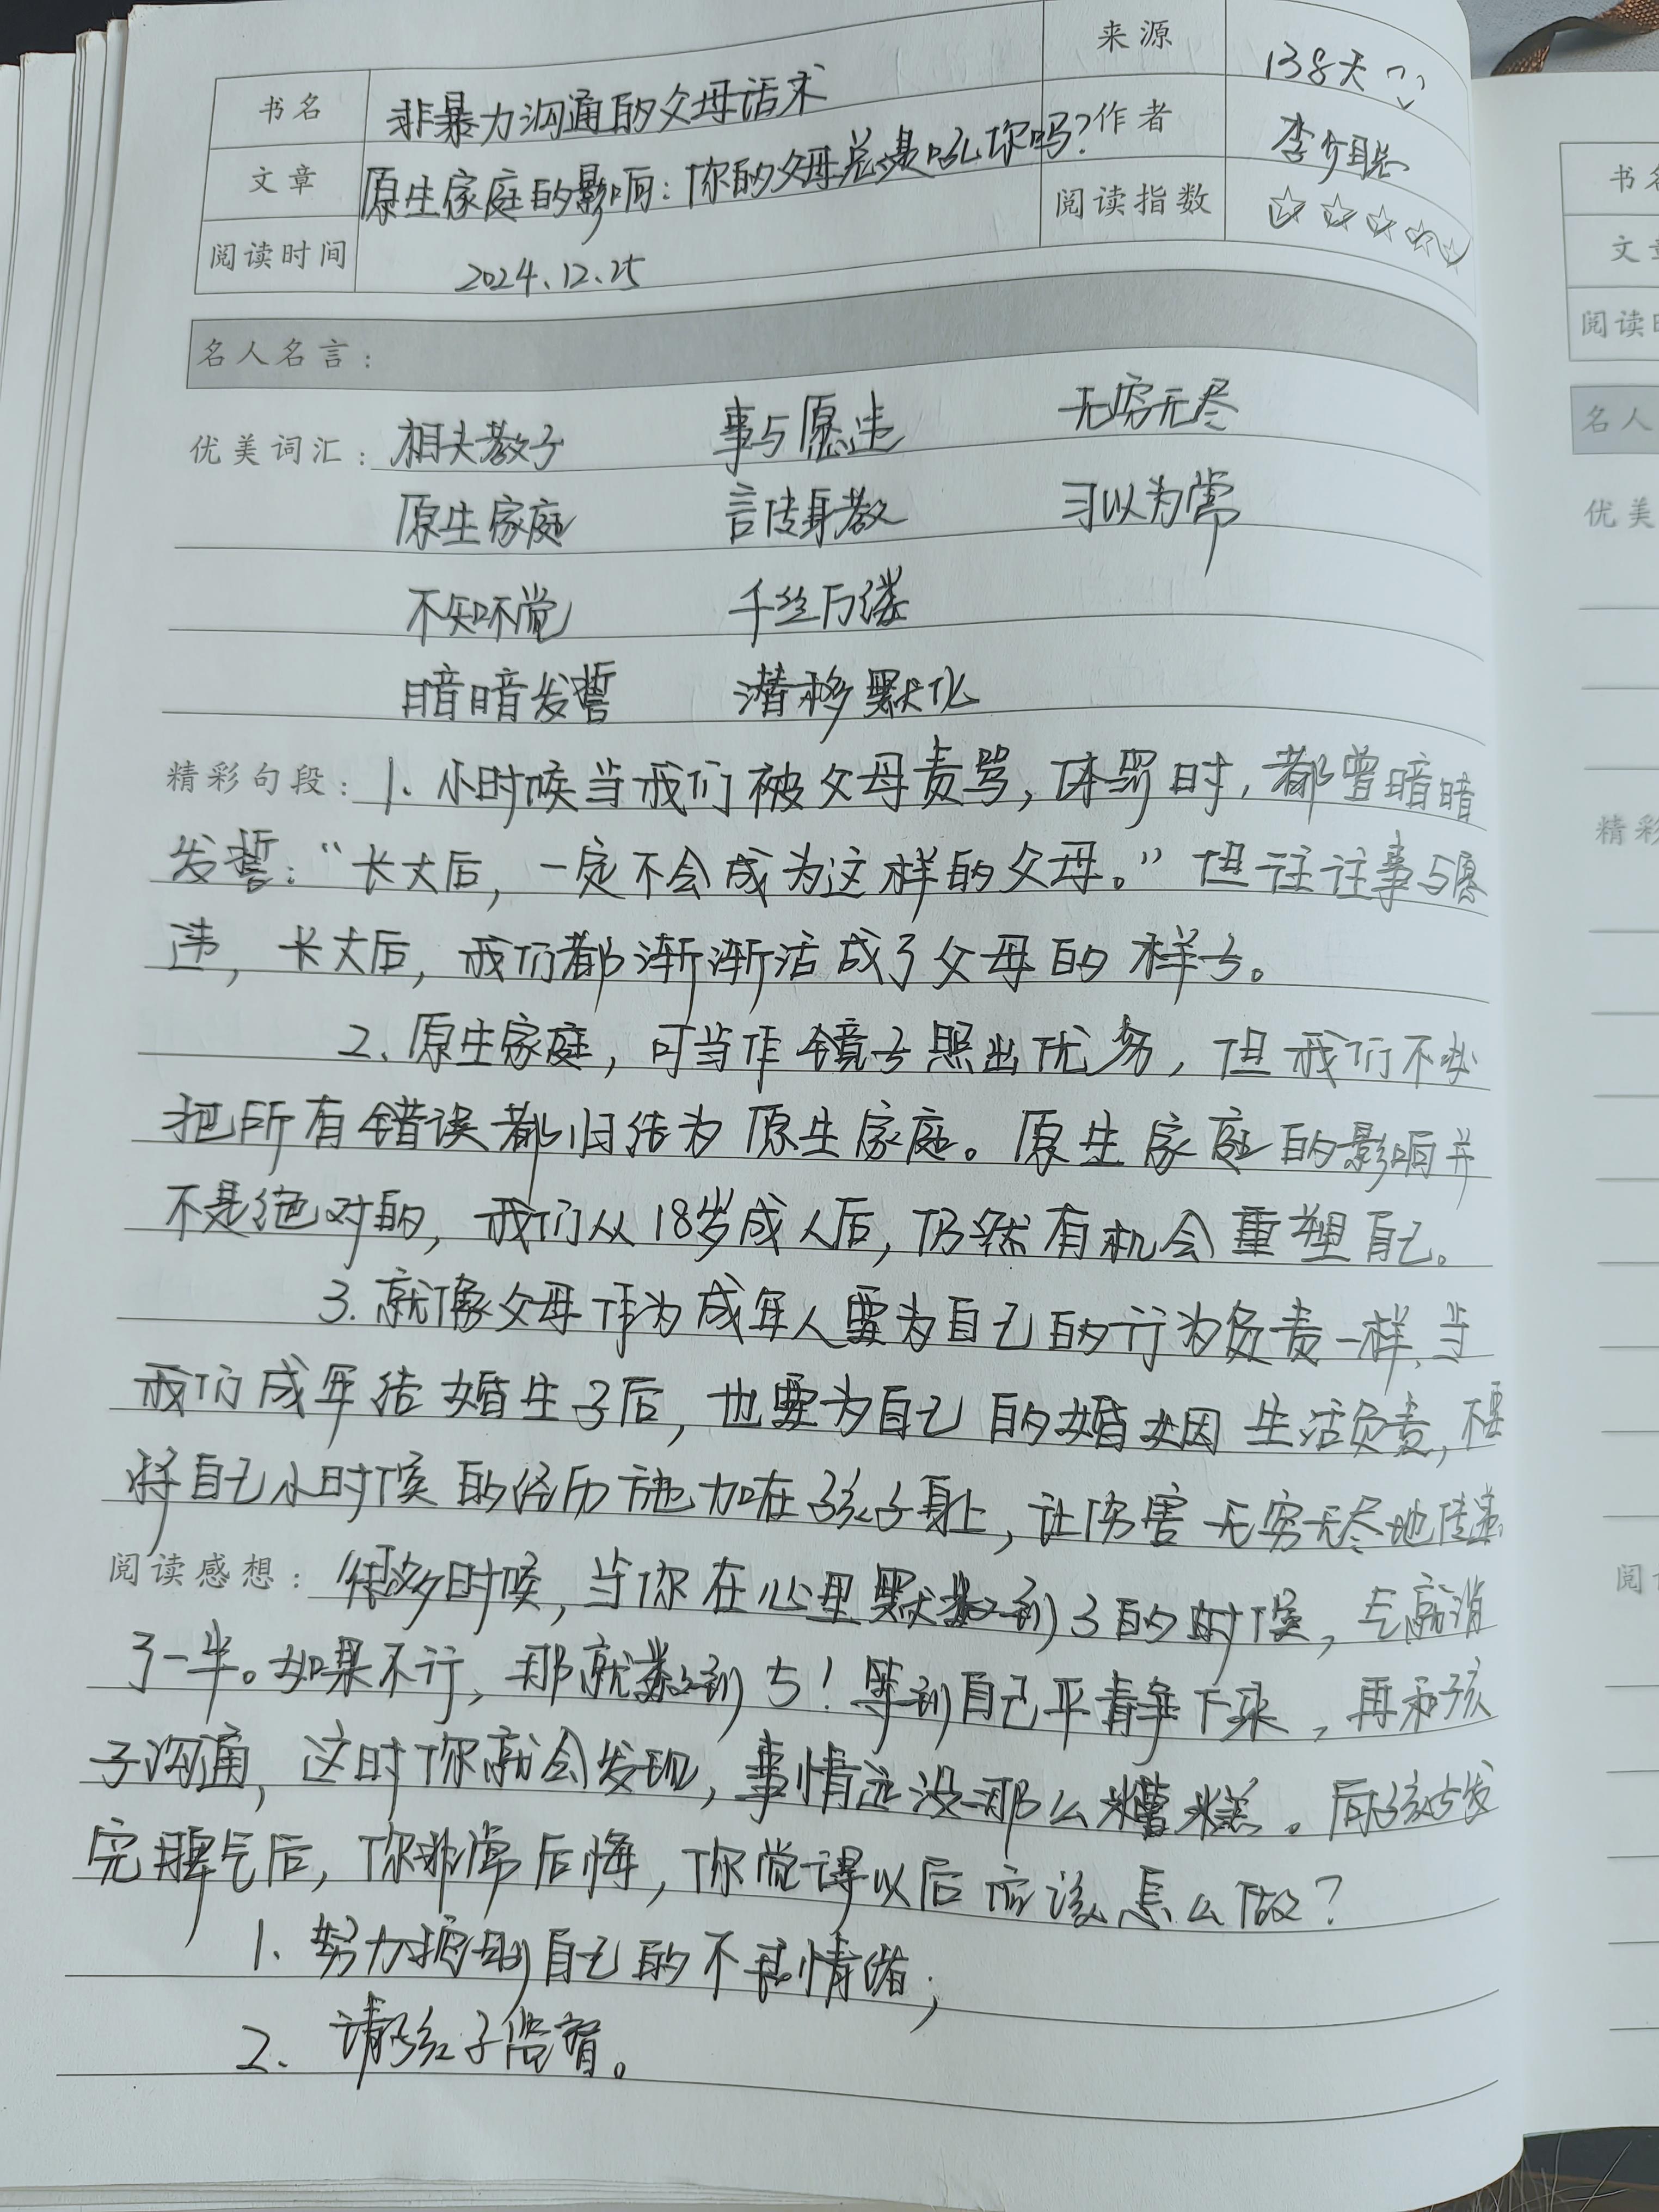 书名 非暴力沟通的父母话术 来源 138天
文章 原生家庭的影响：你的父母总是吼你吗？ 作者 李
阅读时间 2024.12.25 阅读指数 ☆☆☆☆☆
名人名言：
优美词汇：相夫教子 事与愿违 无穷无尽
原生家庭 言传身教 习以为常
不知不觉 千丝万缕
暗暗发誓 潜移默化
精彩句段：1. 小时候当我们被父母责骂，体罚时，都曾暗暗
发誓：“长大后，一定不会成为这样的父母。”但往往事与愿
违，长大后，我们都渐渐活成了父母的样子。
2. 原生家庭，可当作镜子照出优劣，但我们不必
把所有错误都归结为原生家庭。原生家庭的影响并
不是绝对的，我们从18岁成人后，仍然有机会重塑自己。
3. 就像父母作为成年人要为自己的行为负责一样，当
我们成年结婚生子后，也要为自己的婚姻生活负责，不要
将自己小时候的经历施加在孩子身上，让伤害无穷无尽地传递
阅读感想：很多时候，当你在心里默数到3的时候，气就消
了一半。如果不行，那就数到5！等到自己平静下来，再和孩
子沟通，这时你就会发现，事情远没那么糟糕。向孩子发
完脾气后，你非常后悔，你觉得以后应该怎么做？
1. 努力控制自己的不良情绪；
2. 请孩子监督。
书名
文章
阅读时
名人
优美
精彩
阅